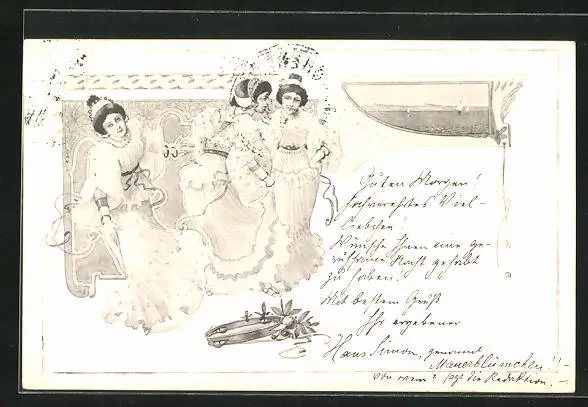 Guten Morgen!
hochverehrtes Viel-
liebchen.
Wünsche Ihnen eine ge-
ruhsame Nacht gehabt
zu haben!
Mit bestem Gruß
Ihr ergebener
Hans Simon, genannt
Mauerblümchen!!
von wem? fragt die Redaktion.